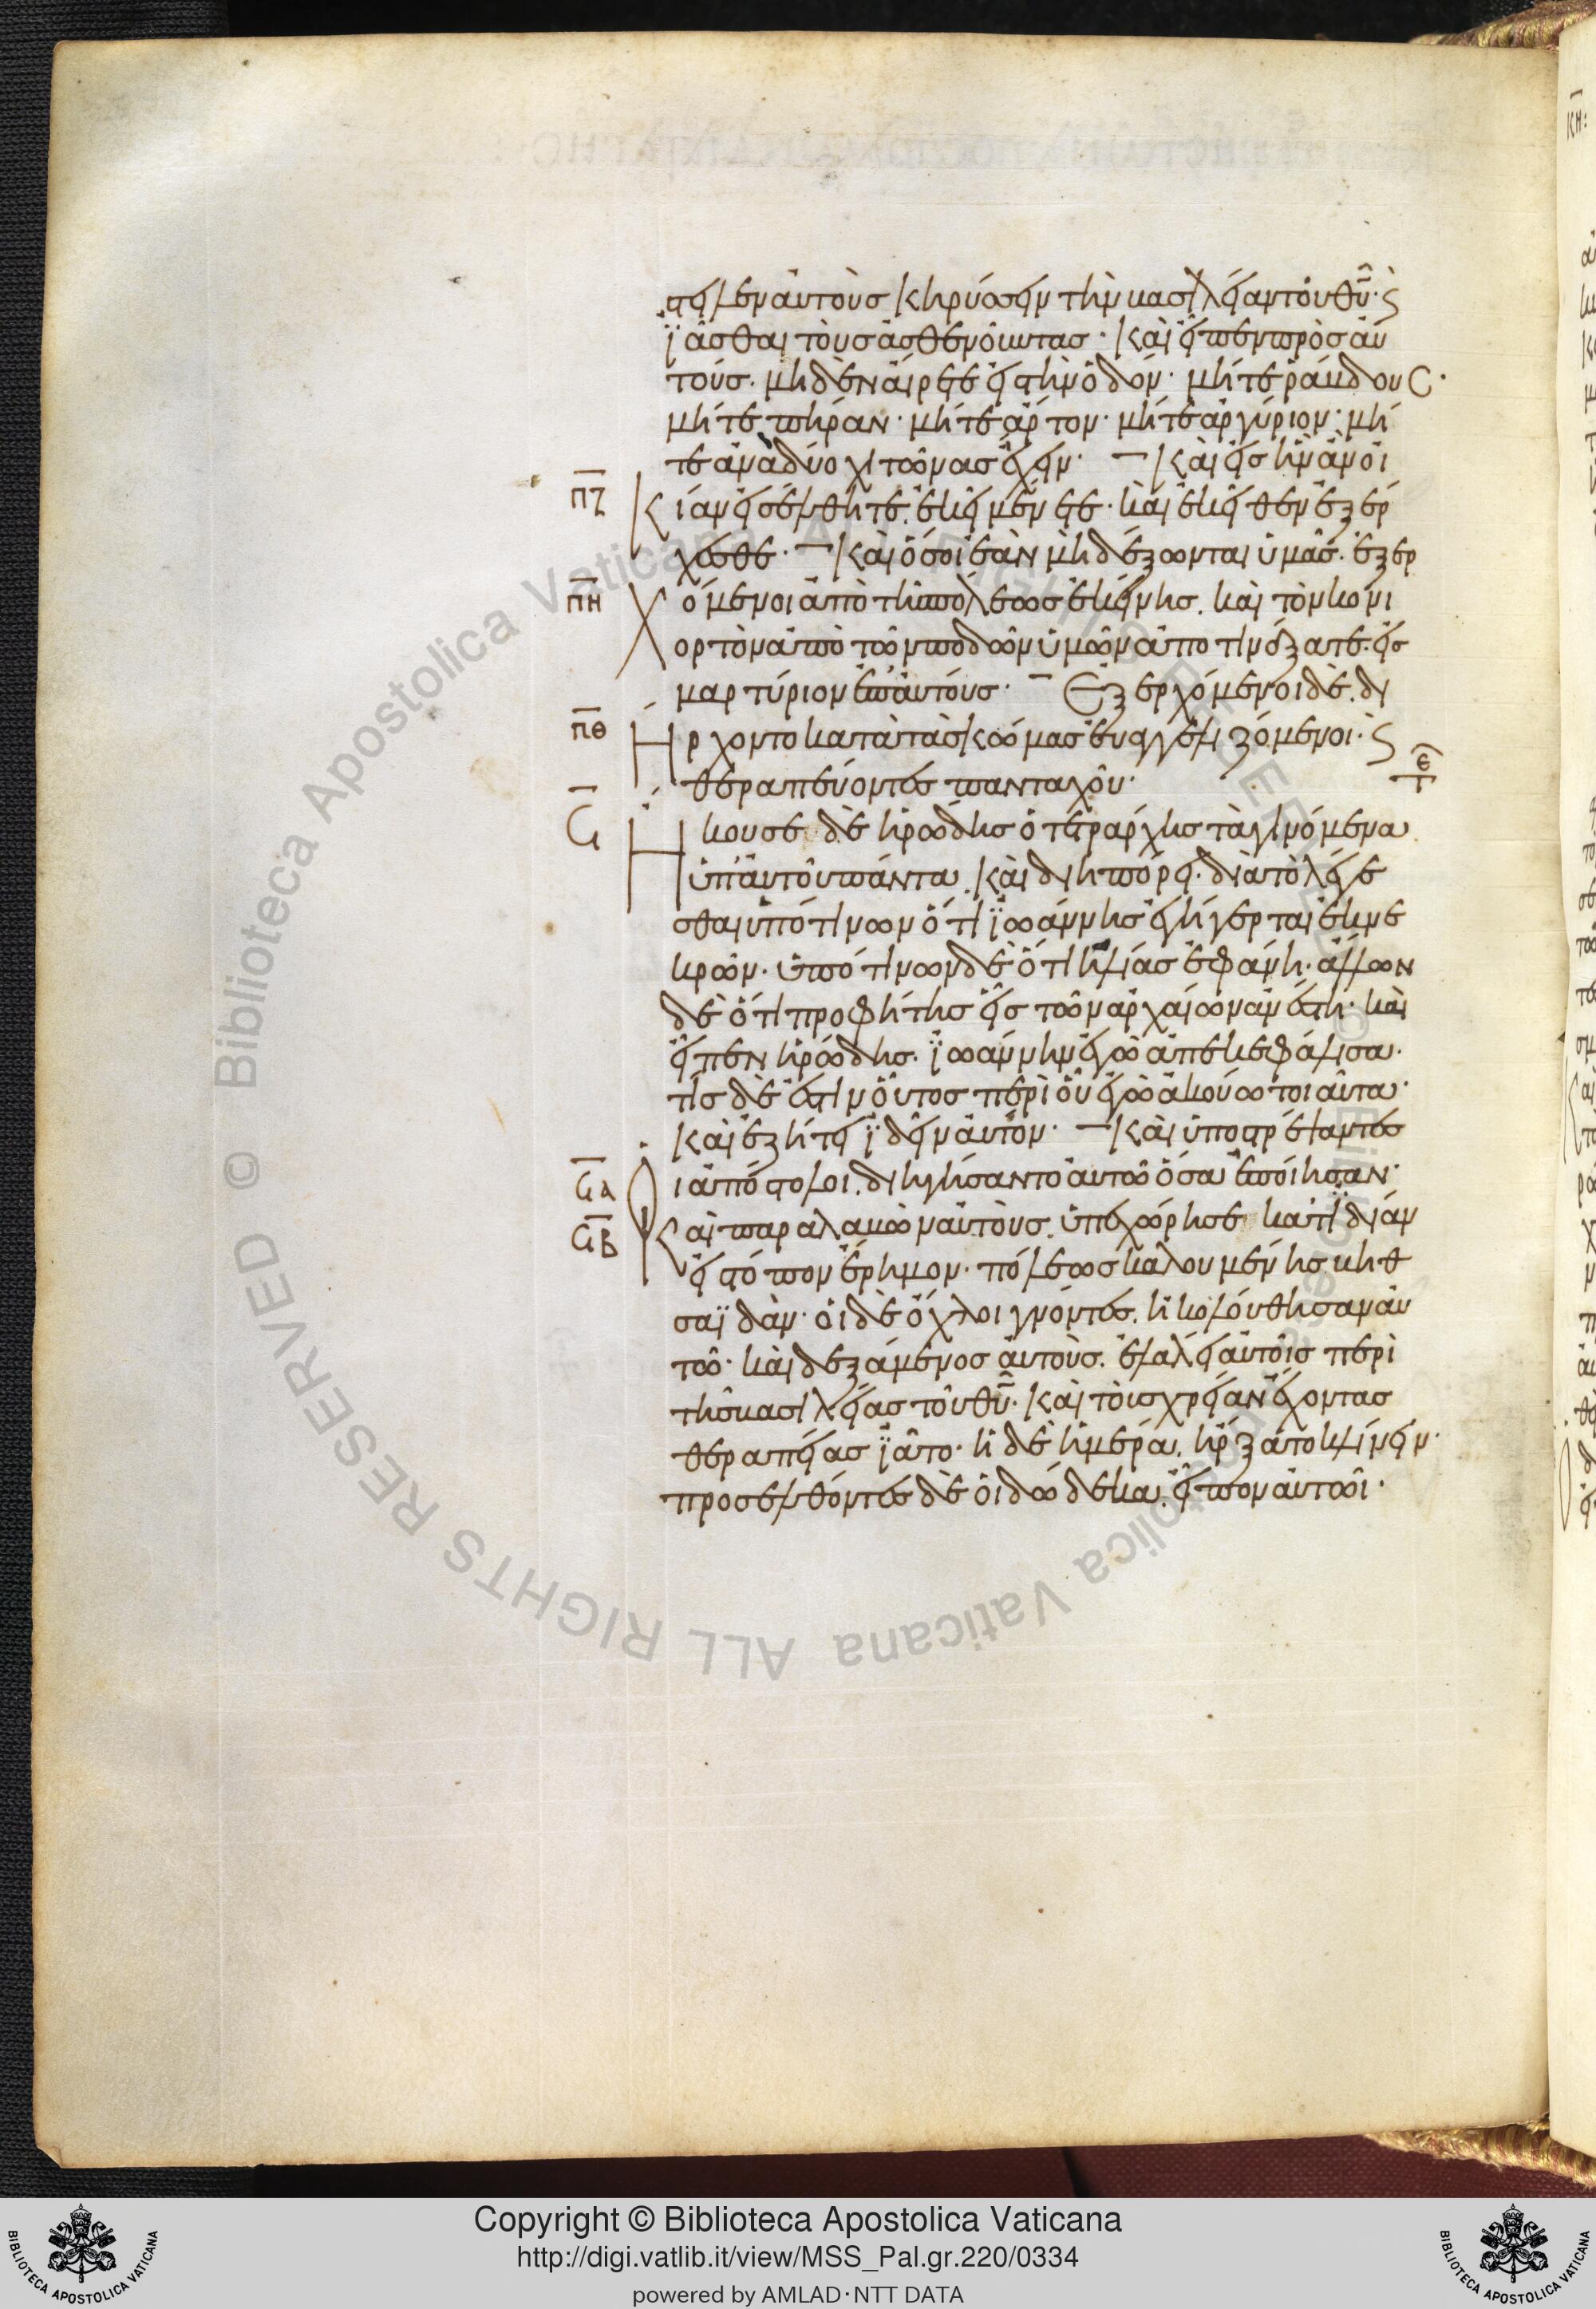 στειλεν αὐτοὺς κηρύσσειν τὴν βασιλείαν τοῦ θῦ· ϛ
ϊᾶσθαι τοὺς ἀσθενοῦντας· καὶ εἶπεν πρὸς αὐ
τούς· μηδὲν αἴρετε εἰς τὴν ὁδόν· μήτε ῥάβδους·
μήτε πήραν· μήτε ἄρτον· μήτε ἀργύριον· μή
τε ἀνὰ δύο χιτῶνας ἔχειν· – καὶ εἰς ἣν ἂν οἰ
πζ κίαν εἰσέλθητε. ἐκεῖ μένετε· καὶ ἐκεῖθεν ἐξέρ
χεσθε· – καὶ ὅσοι ἐὰν μὴ δέξωνται ὑμᾶς. ἐξερ
πη χόμενοι ἀπὸ τῆς πόλεως ἐκείνης. καὶ τὸν κονι
ορτὸν ἀπὸ τῶν ποδῶν ὑμῶν ἀποτινάξατε. εἰς
μαρτύριον ἐπ' αὐτούς· – Ἐξερχόμενοι δὲ. δι
πθ ήρχοντο κατὰ τὰς κώμας εὐαγγελιζόμενοι· ϛ
θεραπεύοντες πανταχοῦ·
Ϟ Ἤκουσε δὲ ἡρώδης ὁ τετράρχης τὰ γινόμενα
ὑπ' αὐτοῦ πάντα. καὶ διηπόρει· διὰ τὸ λέγε
σθαι ὑπό τινων ὅτι ϊωάννης ἐγήγερται ἐκ νε
κρῶν· ὑπό τινων δὲ ὅτι ἡλίας ἐφάνη· ἄλλων
δὲ ὅτι προφήτης εἷς τῶν ἀρχαίων ἀνέστη· καὶ
εἶπεν ἡρώδης· ϊωάννην ἐγὼ ἀπεκεφάλισα·
τίς δέ ἐστιν οὗτος περὶ οὗ ἐγὼ ἀκούω τοιαῦτα·
καὶ ἐζήτει ϊδεῖν αὐτόν· – καὶ ὑποστρέψαντες
Ϟα οἱ ἀπόστολοι. διηγήσαντο αὐτῶ ὅσα ἐποίησαν·
Ϟβ καὶ παραλαβὼν αὐτοὺς. ὑπεχώρησε κατ' ϊδίαν
εἰς τόπον ἔρημον· πόλεως καλουμένης βηθ
σαϊδάν· οἱ δὲ ὄχλοι γνόντες. ἠκολούθησαν αὐ
τῶ· καὶ δεξάμενος αὐτοὺς. ἐλάλει αὐτοῖς περὶ
τῆς βασιλείας τοῦ θῦ· καὶ τοὺς χρείαν ἔχοντας
θεραπείας ϊᾶτο· ἡ δὲ ἡμέρα. ἤρξατο κλίνειν·
προσελθόντες δὲ οἱ δώδεκα. εἶπον αὐτῶι·
Copyright © Biblioteca Apostolica Vaticana
http://digi.vatlib.it/view/MSS_Pal.gr.220/0334
powered by AMLAD·NTT DATA